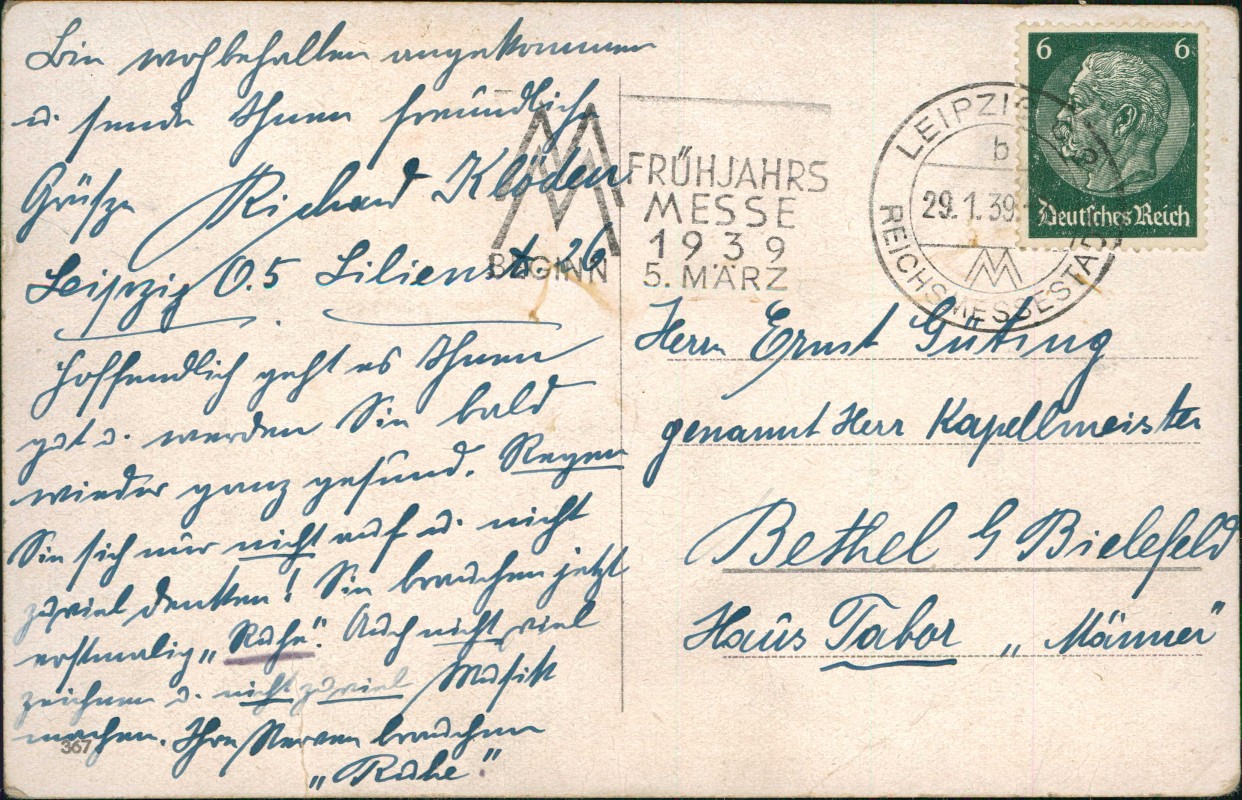 Bin wohbehalten angekommen
u. sende Ihnen freundliche
Grüsze Richard Klöden
Leipzig O.5 Lilienst. 26
Hoffendlich geht es Ihnen
gut u. werden Sie bald
wieder ganz gesund. Regen
Sie sich nur nicht auf u. nicht
zuviel denken! Sie brauchen jetzt
erstmalig „Ruhe". Auch nicht viel
zeichnen u. nicht zuviel Musik
machen. Ihre Nerven brauchen
„Ruhe"
367
BEGINN
FRÜHJAHRS
MESSE
1939
5. MÄRZ
LEIPZIG C2
b
29.1.39
REICHSMESSESTADT
6 6
Deutsches Reich
Herrn Ernst Güting
genannt Herr Kapellmeister
Bethel b Bielefeld
Haus Tabor „Männer"